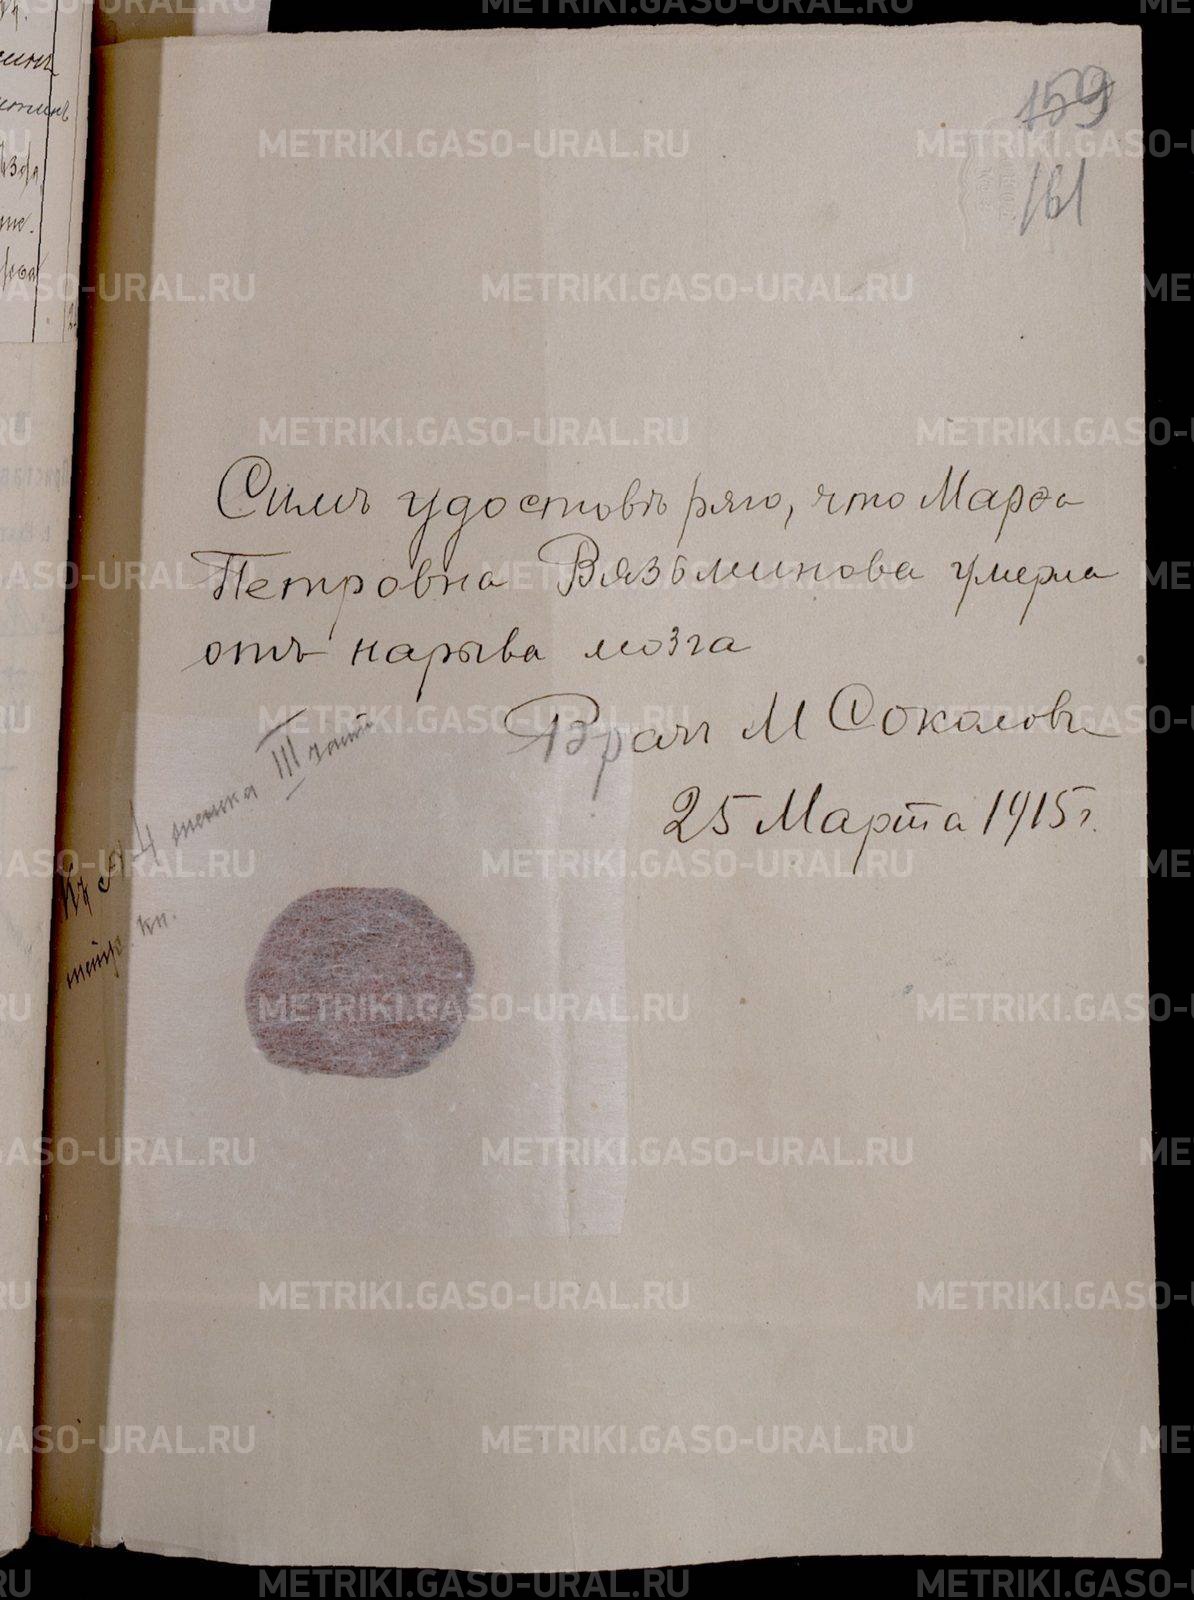 159
161
Симъ удостовѣряю, что Марѳа
Петровна Вязьминова умерла
отъ нарыва мозга
Врачъ М Соколовъ
25 Марта 1915 г.
Къ № 4 III части
метр. кн.
METRIKI.GASO-URAL.RU